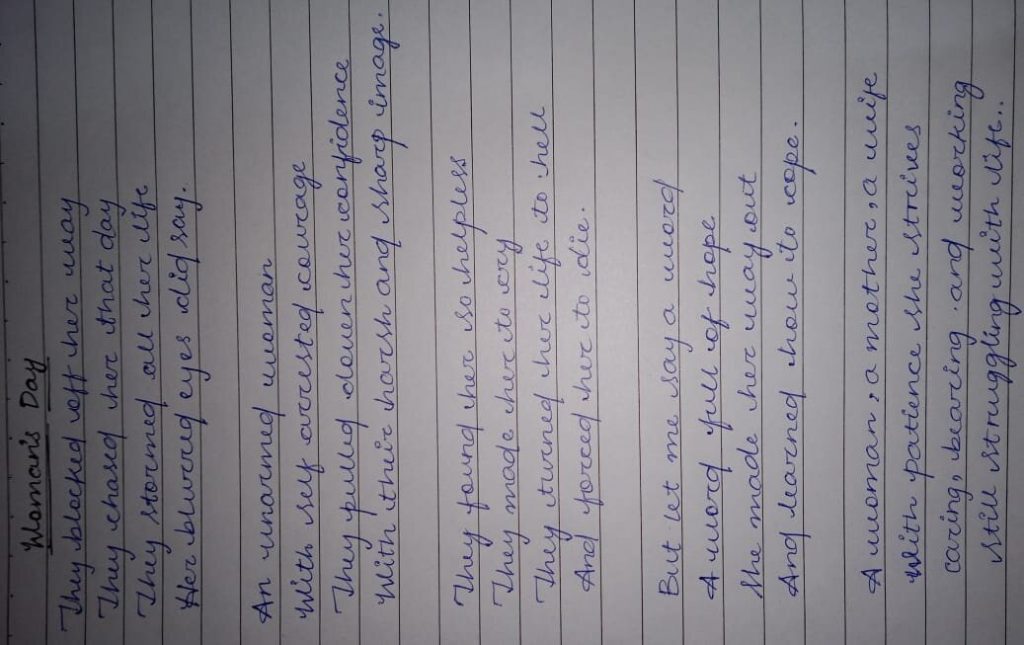 Woman's Day
They blocked off her way
They chased her that day
They stormed all her life
Her blurred eyes did say.
An unarmed woman
With self arrested courage
They pulled down her confidence
With their harsh and sharp image.
They found her so helpless
They made her to cry
They turned her life to hell
And forced her to die.
But let me say a word
A word full of hope
She made her way out
And learned how to cope.
A woman, a mother, a wife
With patience she strives
caring, bearing and working
still struggling with life..